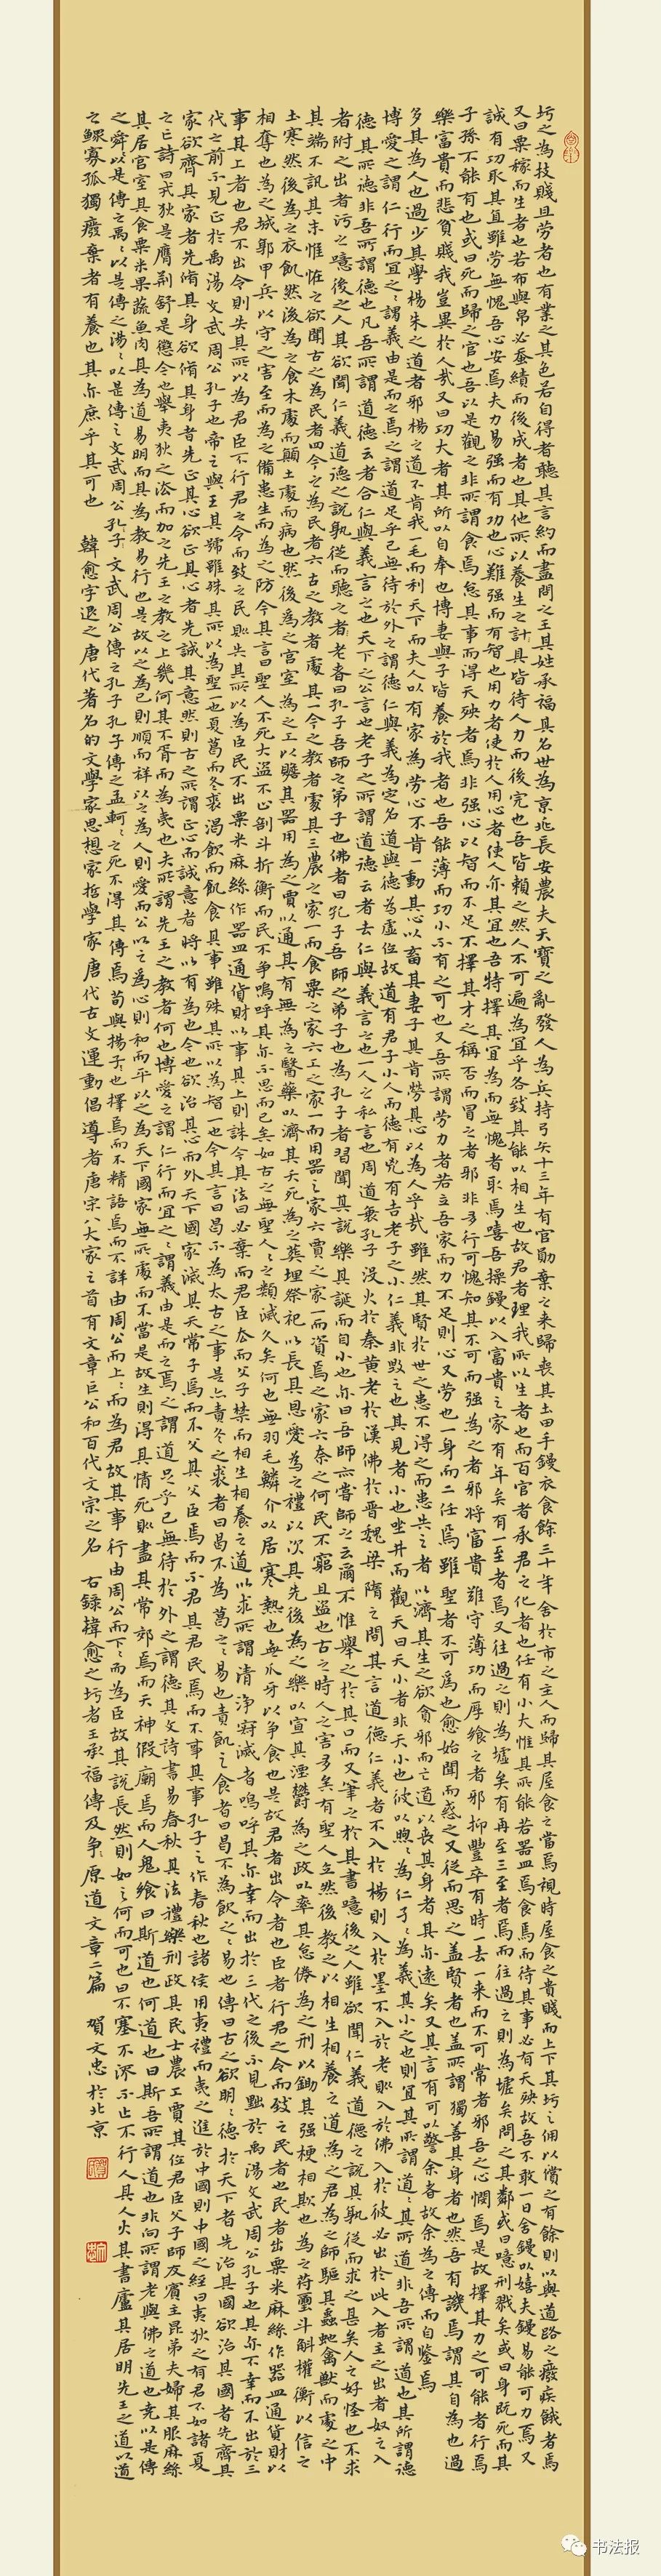 圬之為技賤且勞者也有業之其色若自得者聽其言約而盡問之王其姓承福其名世為京兆長安農夫天寶之亂發人為兵持弓矢十三年有官勛棄之来歸喪其土田手鏝衣食餘三十年舍於市之主人而歸其屋食之當焉視時屋食之貴賤而上下其圬之傭以償之有餘則以與道路之癈疾餓者焉
又曰粟稼而生者也若布與帛必蚕績而後成者也其他所以養生之計具皆待人力而後完也吾皆賴之然人不可遍為宜乎各致其能以相生也故君者理我所以生者也而百官者承君之化者也任有小大惟其所能若器皿焉食焉而待其事必有天殃故吾不敢一日舍鏝以嬉夫鏝易能可力焉又
誠有功取其直雖勞無愧吾心安焉夫力易强而有功也心難强而有智也用力者使於人用心者使人亦其宜也吾特擇其宜為而無愧者取焉嘻吾操鏝以入富貴之家有年矣有一至者焉又往過之則為墟矣有再至三至者焉而往過之則為墟矣問之其鄰或曰噫刑戮矣或曰身既死而其
子孫不能有也或曰死而歸之官也吾以是觀之非所謂食焉怠其事而得天殃者焉非强心以智而不足不擇其才之稱否而冒之者邪非多行可愧知其不可而强為之者邪将富貴難守薄功而厚飨之者邪抑豐卒有時一去一来而不可常者邪吾之心憫焉是故擇其力之可能者行焉
樂富貴而悲貧賤我豈異於人哉又曰功大者其所以自奉也博妻與子皆養於我者也吾能薄而功小不有之可也又吾所謂勞力者若立吾家而力不足則心又勞也一身而二任焉雖聖者不可為也愈始聞而惑之又從而思之盖賢者也盖所謂獨善其身者也然吾有譏焉謂其自為也過
多其為人也過少其學楊朱之道者邪楊之道不肯我一毛而利天下而夫人以有家為勞心不肯一動其心以畜其妻子其肯勞其心以為人乎哉雖然其賢於世之患不得之而患失之者以濟其生之欲貪邪而亡道以喪其身者其亦遠矣又其言有可以警余者故余為之傳而自鑒焉
博愛之謂仁行而宜之之謂義由是而之焉之謂道足乎己無待於外之謂德仁與義為定名道與德為虛位故道有君子小人而德有兇有吉老子之小仁義非毀之也其見者小也坐井而觀天曰天小者非天小也彼以煦煦為仁孑孑為義其小之也則宜其所謂道道其所道非吾所謂道也其所謂德
德其所德非吾所謂德也凡吾所謂道德云者合仁與義言之也天下之公言也老子之所謂道德云者去仁與義言之也一人之私言也周道衰孔子沒火於秦黄老於漢佛於晋魏梁隋之間其言道德仁義者不入於楊則入於墨不入於老則入於佛入於彼必出於此入者主之出者奴之入
者附之出者污之噫後之人其欲聞仁義道德之說孰從而聽之老者曰孔子吾師之弟子也佛者曰孔子吾師之弟子也為孔子者習聞其說樂其誕而自小也亦曰吾師亦嘗師之云爾不惟舉之於其口而又筆之於其書噫後之人雖欲聞仁義道德之說其孰從而求之甚矣人之好怪也不求
其端不訊其末惟怪之欲聞古之為民者四今之為民者六古之教者處其一今之教者處其三農之家一而食粟之家六工之家一而用器之家六賈之家一而資焉之家六奈之何民不窮且盜也古之時人之害多矣有聖人立然後教之以相生相養之道為之君為之師驅其蟲蛇禽獸而處之中
土寒然後為之衣飢然後為之食木處而顛土處而病也然後為之宮室為之工以贍其器用為之賈以通其有無為之醫藥以濟其夭死為之葬埋祭祀以長其恩愛為之禮以次其先後為之樂以宣其湮鬱為之政以率其怠倦為之刑以鋤其强梗相欺也為之符璽斗斛權衡以信之
相奪也為之城郭甲兵以守之害至而為之備患生而為之防今其言曰聖人不死大盜不止剖斗折衡而民不争嗚呼其亦不思而已矣如古之無聖人人之類滅久矣何也無羽毛鱗介以居寒熱也無爪牙以争食也是故君者出令者也臣者行君之令而致之民者也民者出粟米麻絲作器皿通貨財以
事其上者也君不出令則失其所以為君臣不行君之令而致之民則失其所以為臣民不出粟米麻絲作器皿通貨財以事其上則誅今其法曰必棄而君臣去而父子禁而相生相養之道以求所謂清浄寂滅者嗚呼其亦幸而出於三代之後不見黜於禹湯文武周公孔子也其亦不幸而不出於三
代之前不見正於禹湯文武周公孔子也帝之與王其號雖殊其所以為聖一也夏葛而冬裘渴飲而飢食其事雖殊其所以為智一也今其言曰曷不為太古之事是亦責冬之裘者曰曷不為葛之之易也責飢之食者曰曷不為飲之之易也傳曰古之欲明明德於天下者先治其國欲治其國者先齊其
家欲齊其家者先脩其身欲脩其身者先正其心欲正其心者先誠其意然則古之所謂正心而誠意者將以有為也今也欲治其心而外天下國家滅其天常子焉而不父其父臣焉而不君其君民焉而不事其事孔子之作春秋也諸侯用夷禮而夷之進於中國則中國之經曰夷狄之有君不如諸夏
之亡詩曰戎狄是膺荆舒是懲今也舉夷狄之法而加之先王之教之上幾何其不胥而為夷也夫所謂先王之教者何也博愛之謂仁行而宜之之謂義由是而之焉之謂道足乎己無待於外之謂德其文詩書易春秋其法禮樂刑政其民士農工賈其位君臣父子師友賓主昆弟夫婦其服麻絲
其居宮室其食粟米果蔬魚肉其為道易明而其為教易行也是故以之為己則順而祥以之為人則愛而公以之為心則和而平以之為天下國家無所處而不當是故生則得其情死則盡其常郊焉而天神假廟焉而人鬼飨曰斯道也何道也曰斯吾所謂道也非向所謂老與佛之道也堯以是傳
之舜舜以是傳之禹禹以是傳之湯湯以是傳之文武周公孔子文武周公傳之孔子孔子傳之孟軻軻之死不得其傳焉荀與揚子也擇焉而不精語焉而不詳由周公而上上而為君故其事行由周公而下下而為臣故其說長然則如之何而可也曰不塞不流不止不行人其人火其書廬其居明先王之道以道
之鰥寡孤獨癈棄者有養也其亦庶乎其可也 韓愈字退之唐代著名的文學家思想家哲學家唐代古文運動倡導者唐宋八大家之首有文章巨公和百代文宗之名 右録韓愈之圬者王承福傳及争原道文章二篇 賀文忠於北京
书法报